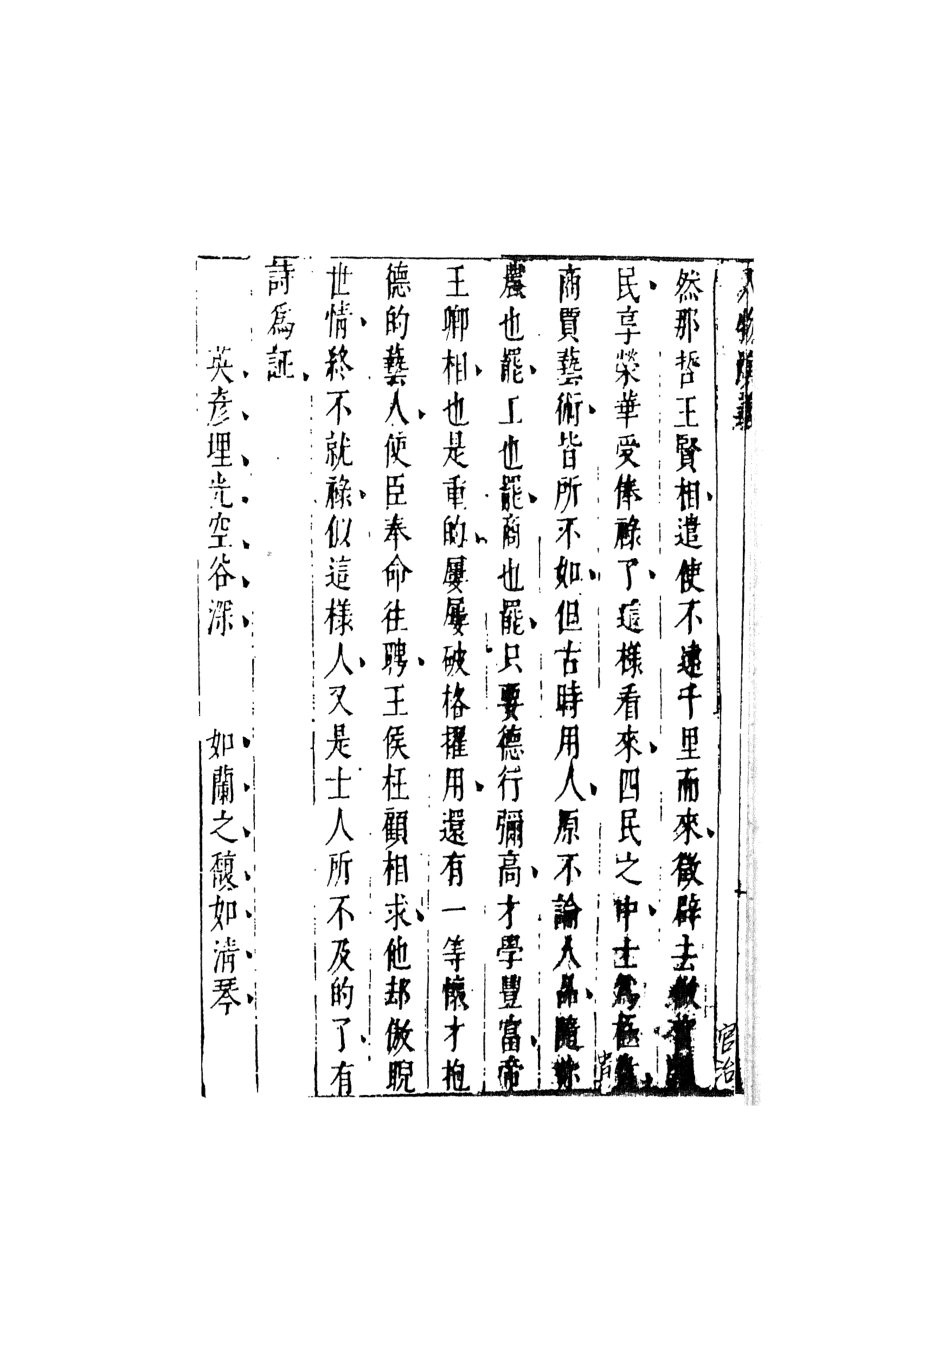 人物演義
官治
然那哲王賢相遣使不遠千里而來徵辟去做官
民享榮華受俸祿了這樣看來四民之中士爲極
商賈藝術皆所不如但古時用人原不論人品隨你
農也罷工也罷商也罷只要德行彌高才學豐富帝
王卿相也是重的屢屢破格擢用還有一等懷才抱
德的藝人使臣奉命往聘王侯枉顧相求他却傲睨
世情終不就祿似這樣人又是士人所不及的了有
詩爲証
英彥埋光空谷深 如蘭之馥如清琴